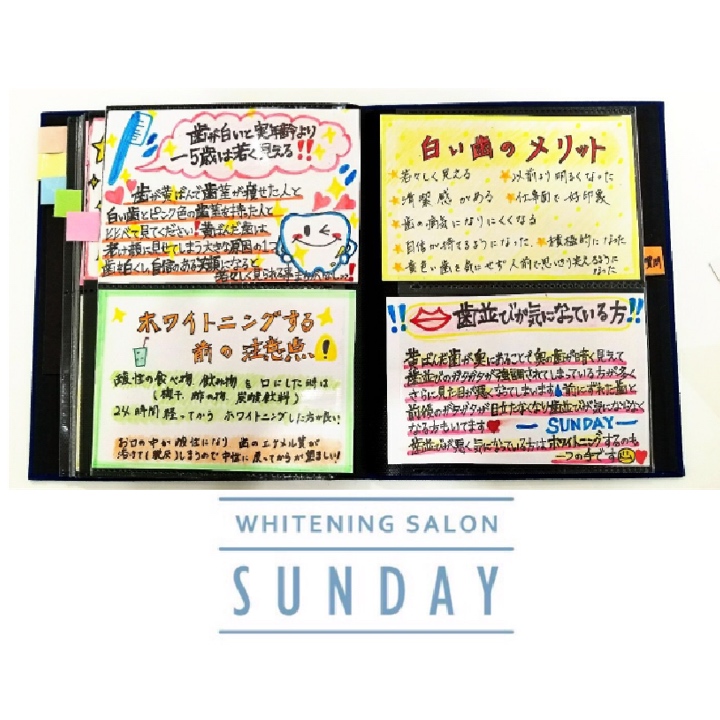 歯が白いと実年齢より
−5歳は若く見える!!
歯が黄ばんで歯茎が痩せた人と
白い歯とピンク色の歯茎を持た人と
比べて見てください!黄ばんだ歯は
老け顔に見せてしまう大きな原因の1つ
歯を白くし、自信のある笑顔になると
白い歯のメリット
若々しく見える
以前より明るくなった
清潔感がある
仕事面で好印象
歯の病気になりにくくなる
自信が持てるようになった
積極的になった
黄色い歯を気にせず人前で思いっきり笑えるように
なった
質問
ホワイトニングする
前の注意点!
酸性の食べ物 飲み物 を口にした時は
(梅干、酢の物、炭酸飲料)
24時間経ってからホワイトニングした方が良い
お口の中が酸性になり 歯のエナメル質が
溶けてしまうので中性に戻ってからが望ましい!
!!歯並びが気になっている方!!
黄ばんだ歯が奥にあることで奥の歯が暗く見えて
歯並びのガタガタが強調されてしまっている方が多く
さらに見た目が悪くなってしまいます 前にずれた歯と
前後のガタガタが目立たなくなり歯並びが気にならなく
なる方もいてます
SUNDAY
歯並びが悪く気になっている方はホワイトニングするのも
一つの手です
WHITENING SALON
SUNDAY